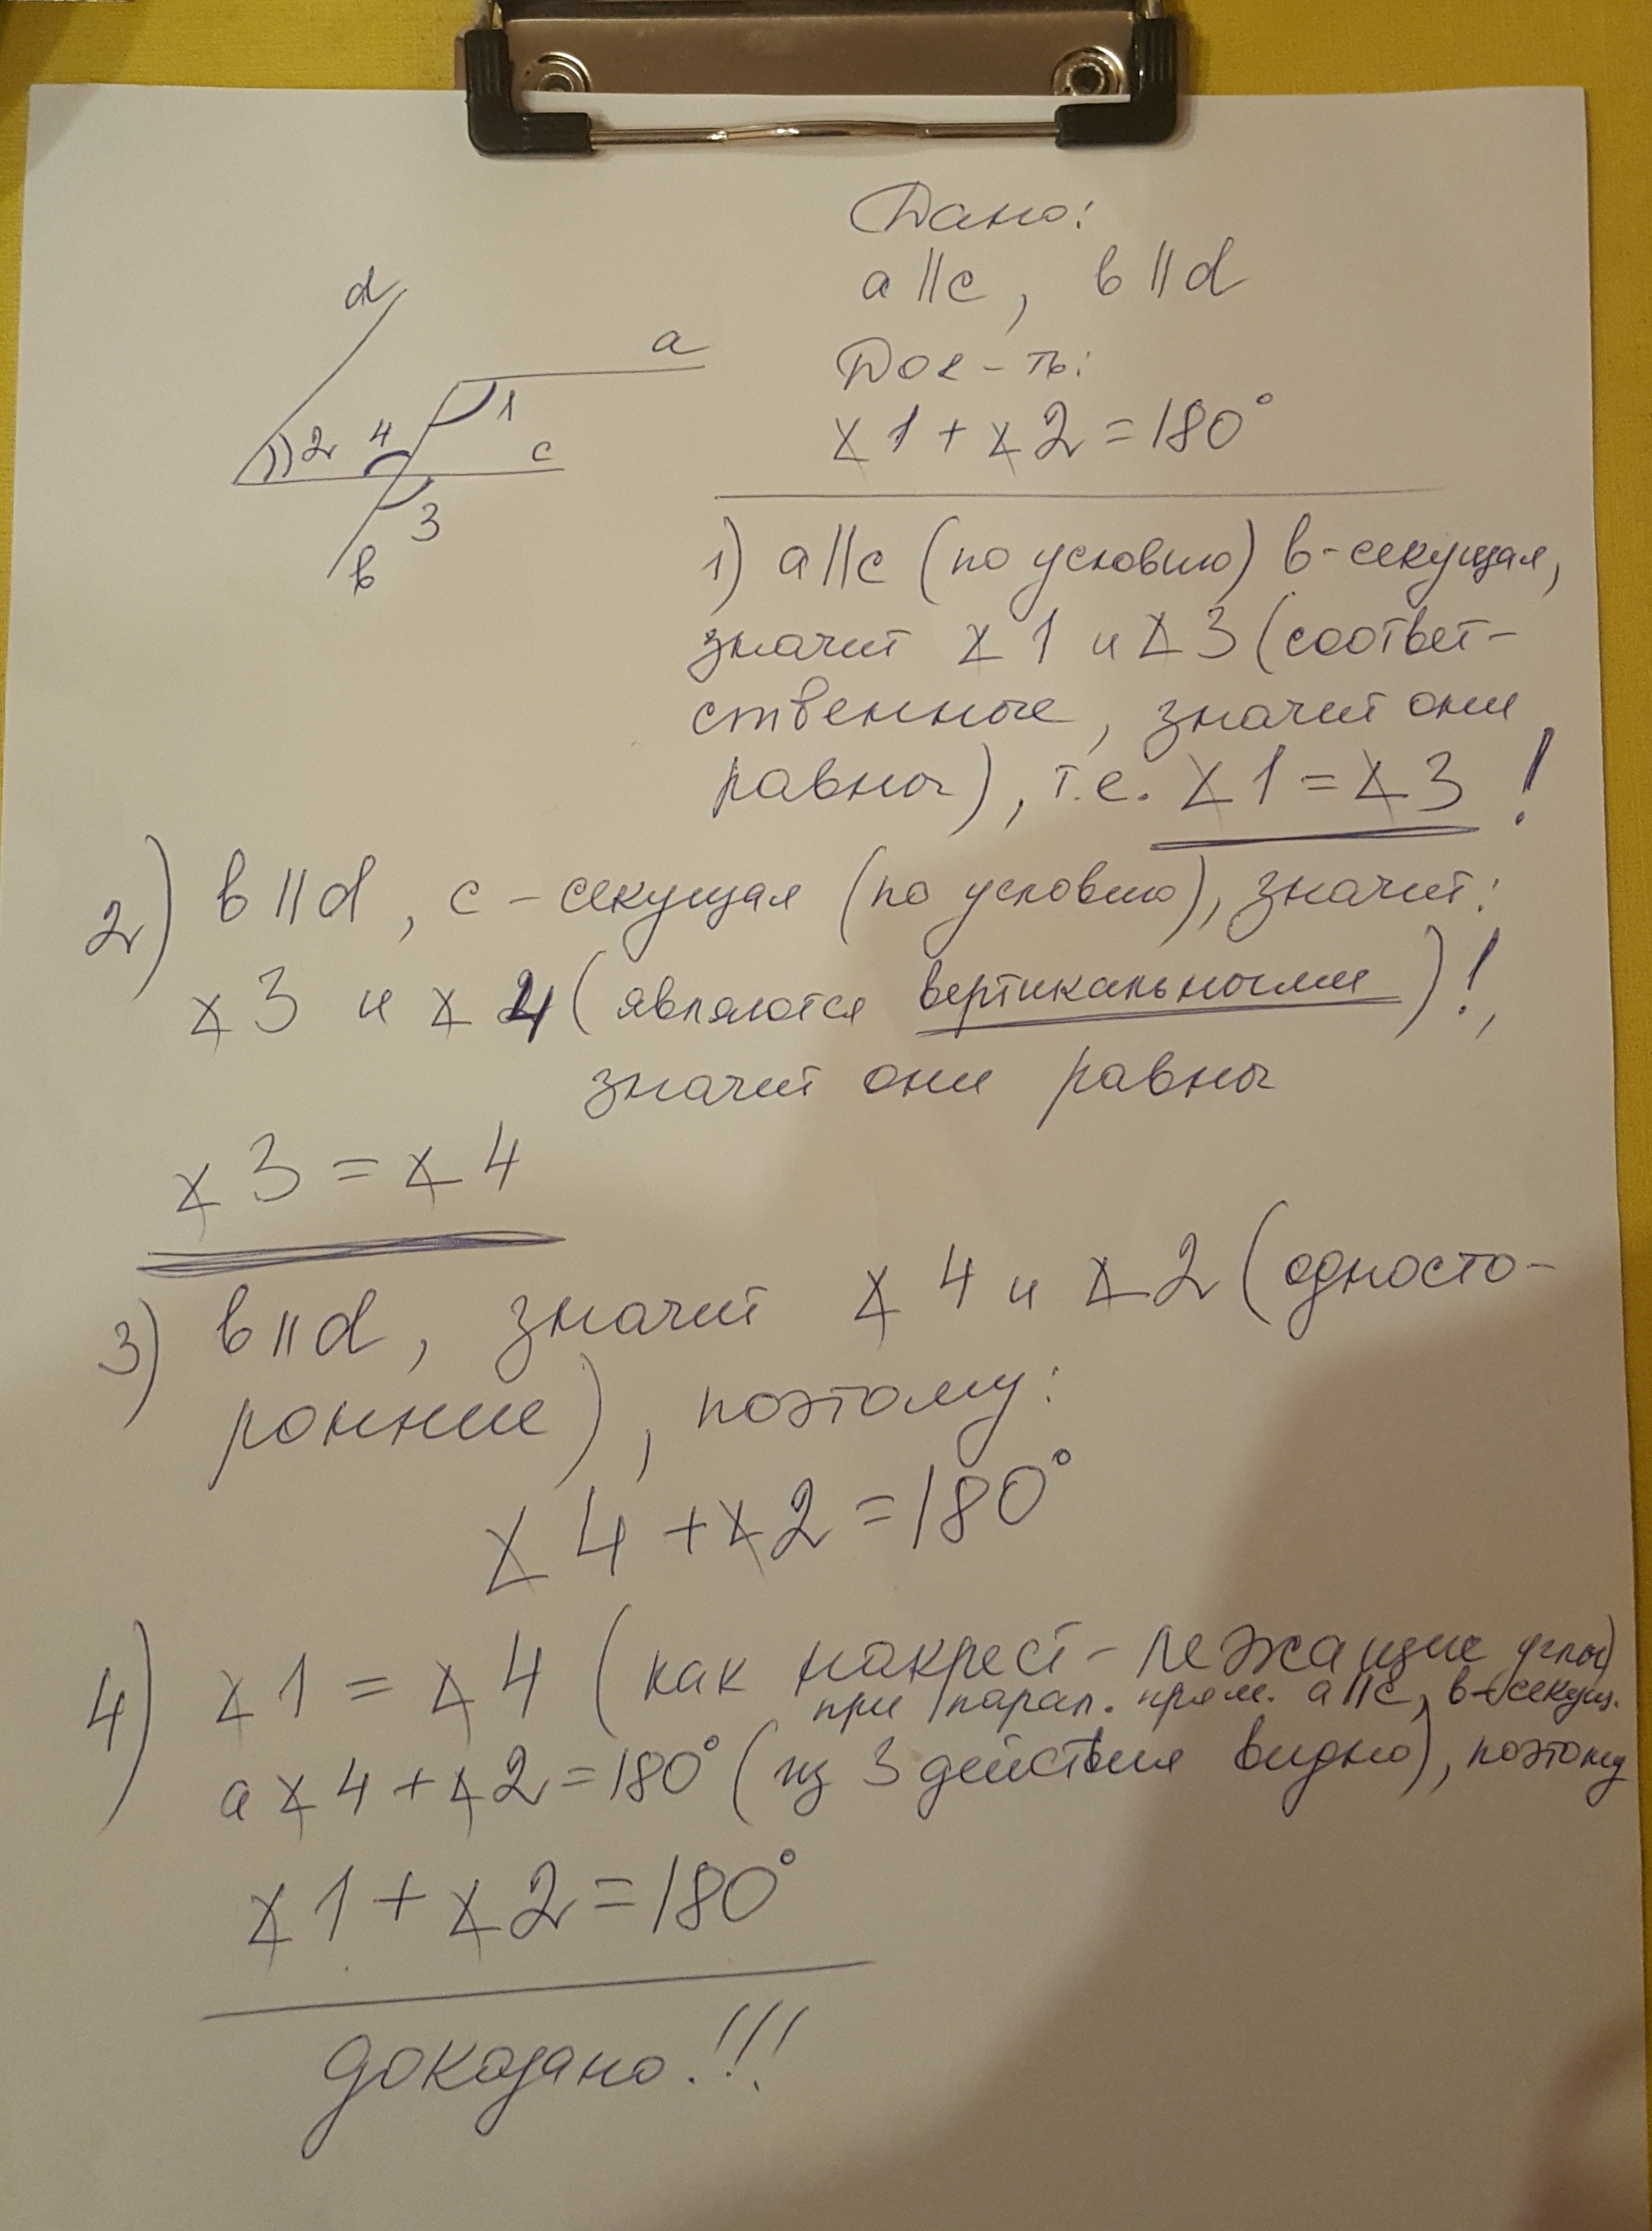 Дано:
a||c, в||d
Док-ть:
∠1+∠2=180°
d
a
1
2
4
c
3
в
1) a||c (по условию) в-секущая,
значит ∠1 и ∠3 (соответ-
ственные, значит они
равны), т.е. ∠1=∠3!
2) в||d, c-секущая (по условию), значит:
∠3 и ∠4 (являются вертикальными)!,
значит они равны
∠3=∠4
3) в||d, значит ∠4 и ∠2 (односто-
ронние), поэтому:
∠4+∠2=180°
4) ∠1=∠4 (как накрест-лежащие углы)
при парал. прям. a||c, в-секущ.
а ∠4+∠2=180° (из 3 действия видно), поэтому
∠1+∠2=180°
доказано!!!